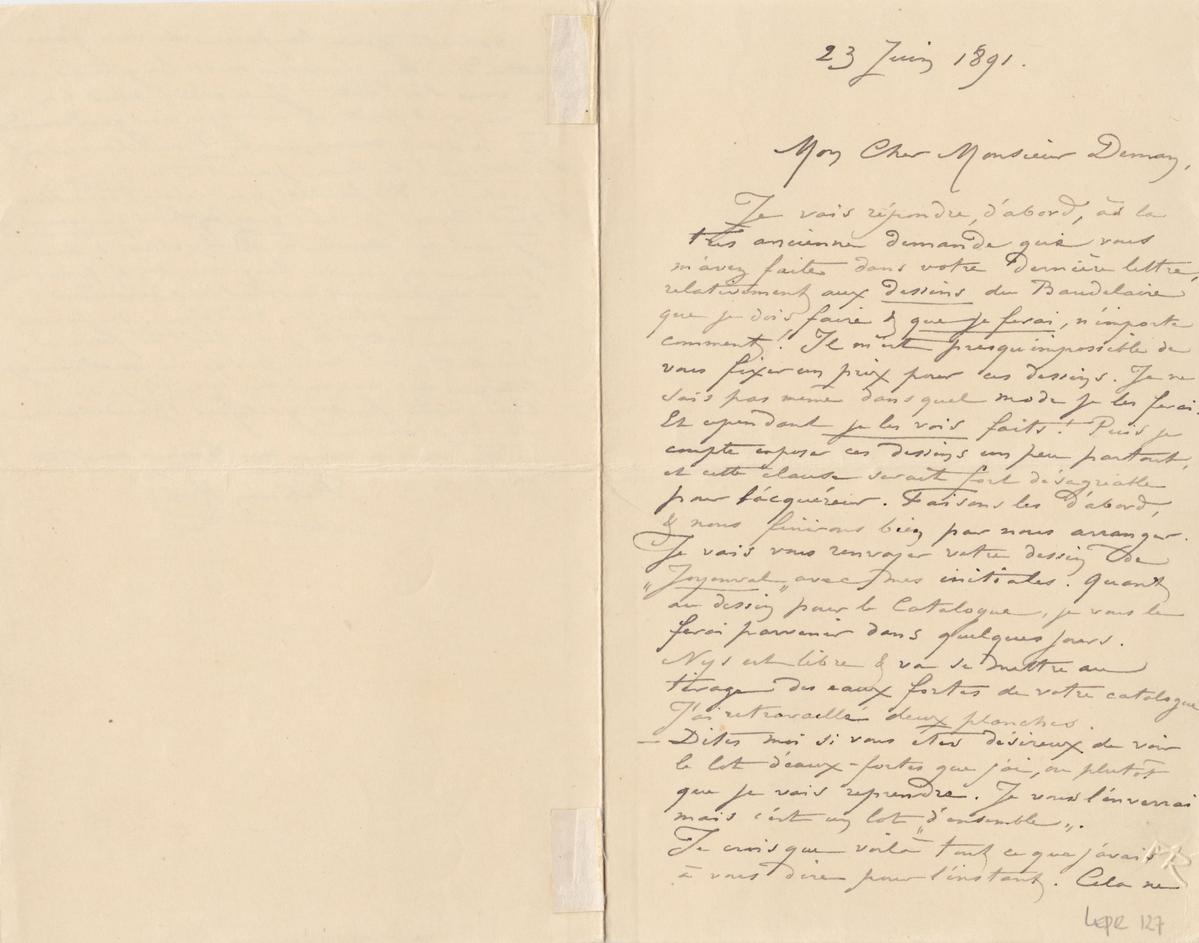 23 Juin 1891.
Mon Cher Monsieur Deman,
Je vais répondre, d'abord, à la
très ancienne demande que vous
m'avez faite dans votre dernière lettre,
relativement aux dessins du Baudelaire
que je dois faire & que je ferai, n'importe
comment! Il m'est presqu'impossible de
vous fixer un prix pour ces dessins. Je ne
sais pas même dans quel mode je les ferai.
Et cependant je les vois faits! Puis je
compte exposer ces dessins un peu partout,
et cette clause serait fort désagréable
pour l'acquéreur. Faisons les d'abord,
& nous finirons bien par nous arranger.
Je vais vous renvoyer votre dessin de
„Joyenval„ avec mes initiales. Quant
au dessin pour le Catalogue, je vous le
ferai parvenir dans quelques jours.
Nys est libre & va se mettre au
tirage des eaux fortes de votre catalogue
J'ai retravaillé deux planches.
— Dites moi si vous êtes désireux de voir
le lot d'eaux-fortes que j'ai, ou plutôt
que je vais reprendre. Je vous l'enverrai
mais c'est un lot „d'ensemble„.
Je crois que voilà tout ce que j'avais
à vous dire pour l'instant. Cela ne
LEPR 127